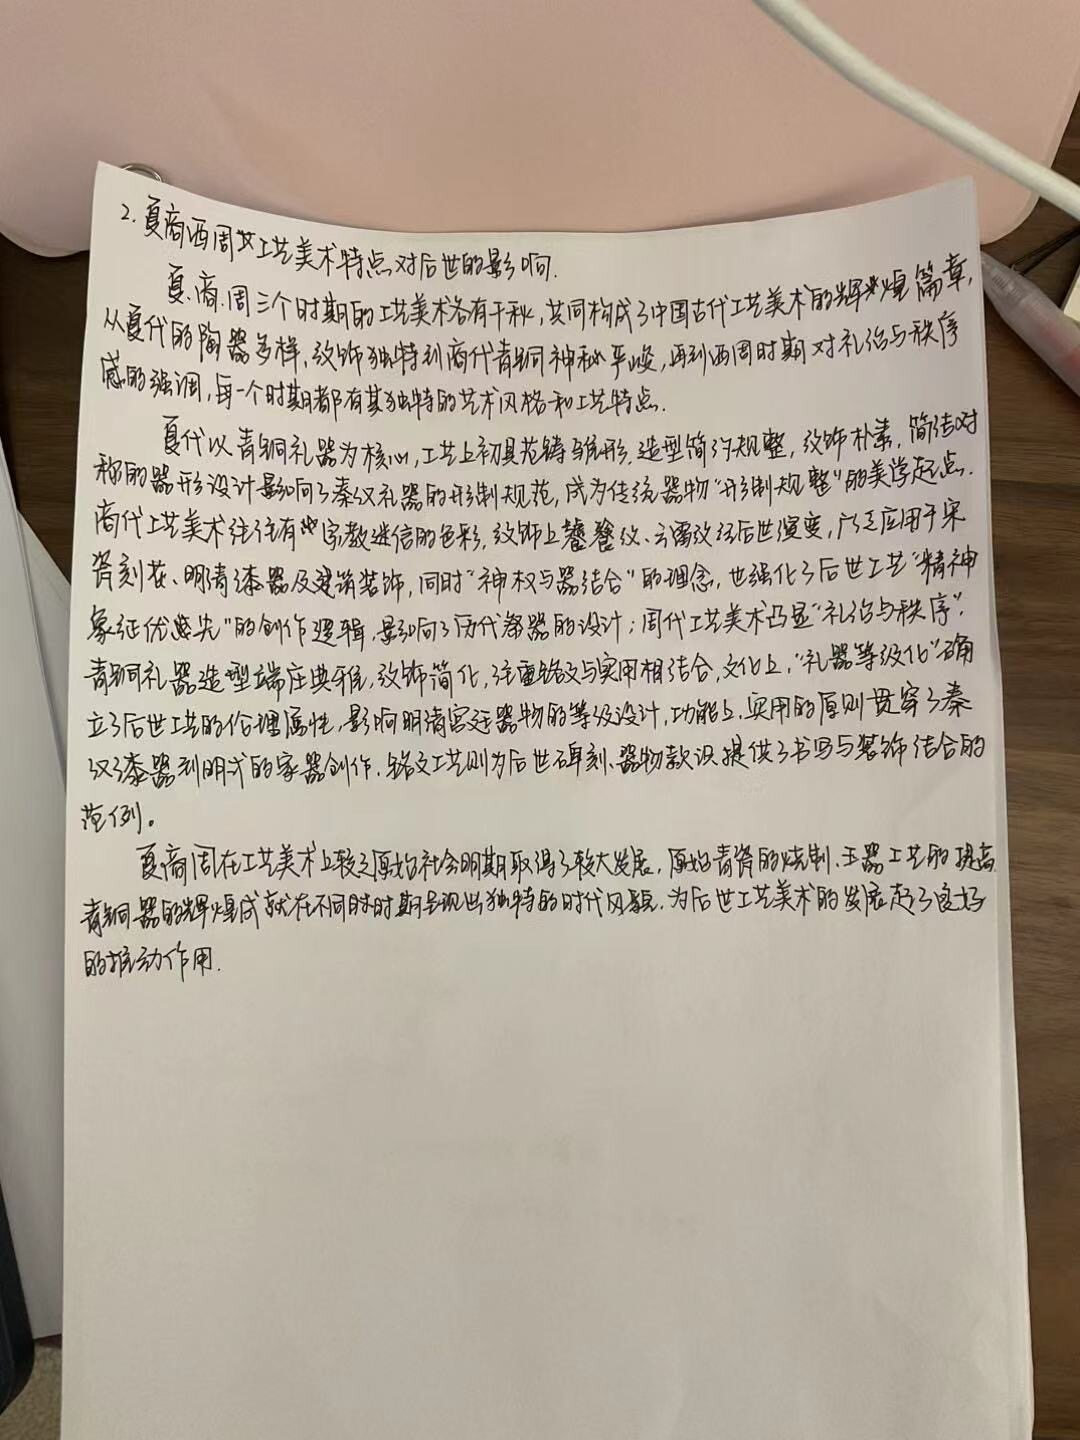 2. 夏商西周工艺美术特点对后世的影响.
夏.商.周三个时期的工艺美术各有千秋,共同构成了中国古代工艺美术的辉煌篇章,
从夏代的陶器多样、纹饰独特到商代青铜神秘严峻,再到西周时期对礼治与秩序
感的强调,每一个时期都有其独特的艺术风格和工艺特点.
夏代以青铜礼器为核心,工艺上初具范铸雏形.造型简约规整,纹饰朴素,简洁对
称的器形设计影响了秦汉礼器的形制规范,成为传统器物“形制规整”的美学起点.
商代工艺美术往往有宗教迷信的色彩,纹饰上饕餮纹、云雷纹经后世演变,广泛应用于宋
瓷刻花、明清漆器及建筑装饰,同时“神权与器结合”的理念,也强化了后世工艺“精神
象征优先”的创作逻辑,影响了历代祭器的设计;周代工艺美术凸显“礼治与秩序”.
青铜礼器造型端庄典雅,纹饰简化,注重铭文与实用相结合,文化上,“礼器等级化”确
立了后世工艺的伦理属性,影响明清宫廷器物的等级设计,功能上.实用的原则贯穿了秦
汉漆器到明式的家器创作.铭文工艺则为后世碑刻、器物款识提供了书写与装饰结合的
范例。
夏商周在工艺美术上较之原始社会明期取得了较大发展,原始青瓷的烧制、玉器工艺的提高
青铜器的辉煌成就在不同时时期呈现出独特的时代风貌,为后世工艺美术的发展起了良好
的推动作用.